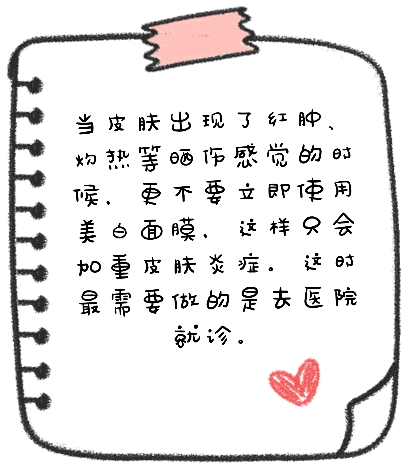 当皮肤出现了红肿、
灼热等晒伤感觉的时
候，更不要立即使用
美白面膜，这样只会
加重皮肤炎症。这时
最需要做的是去医院
就诊。